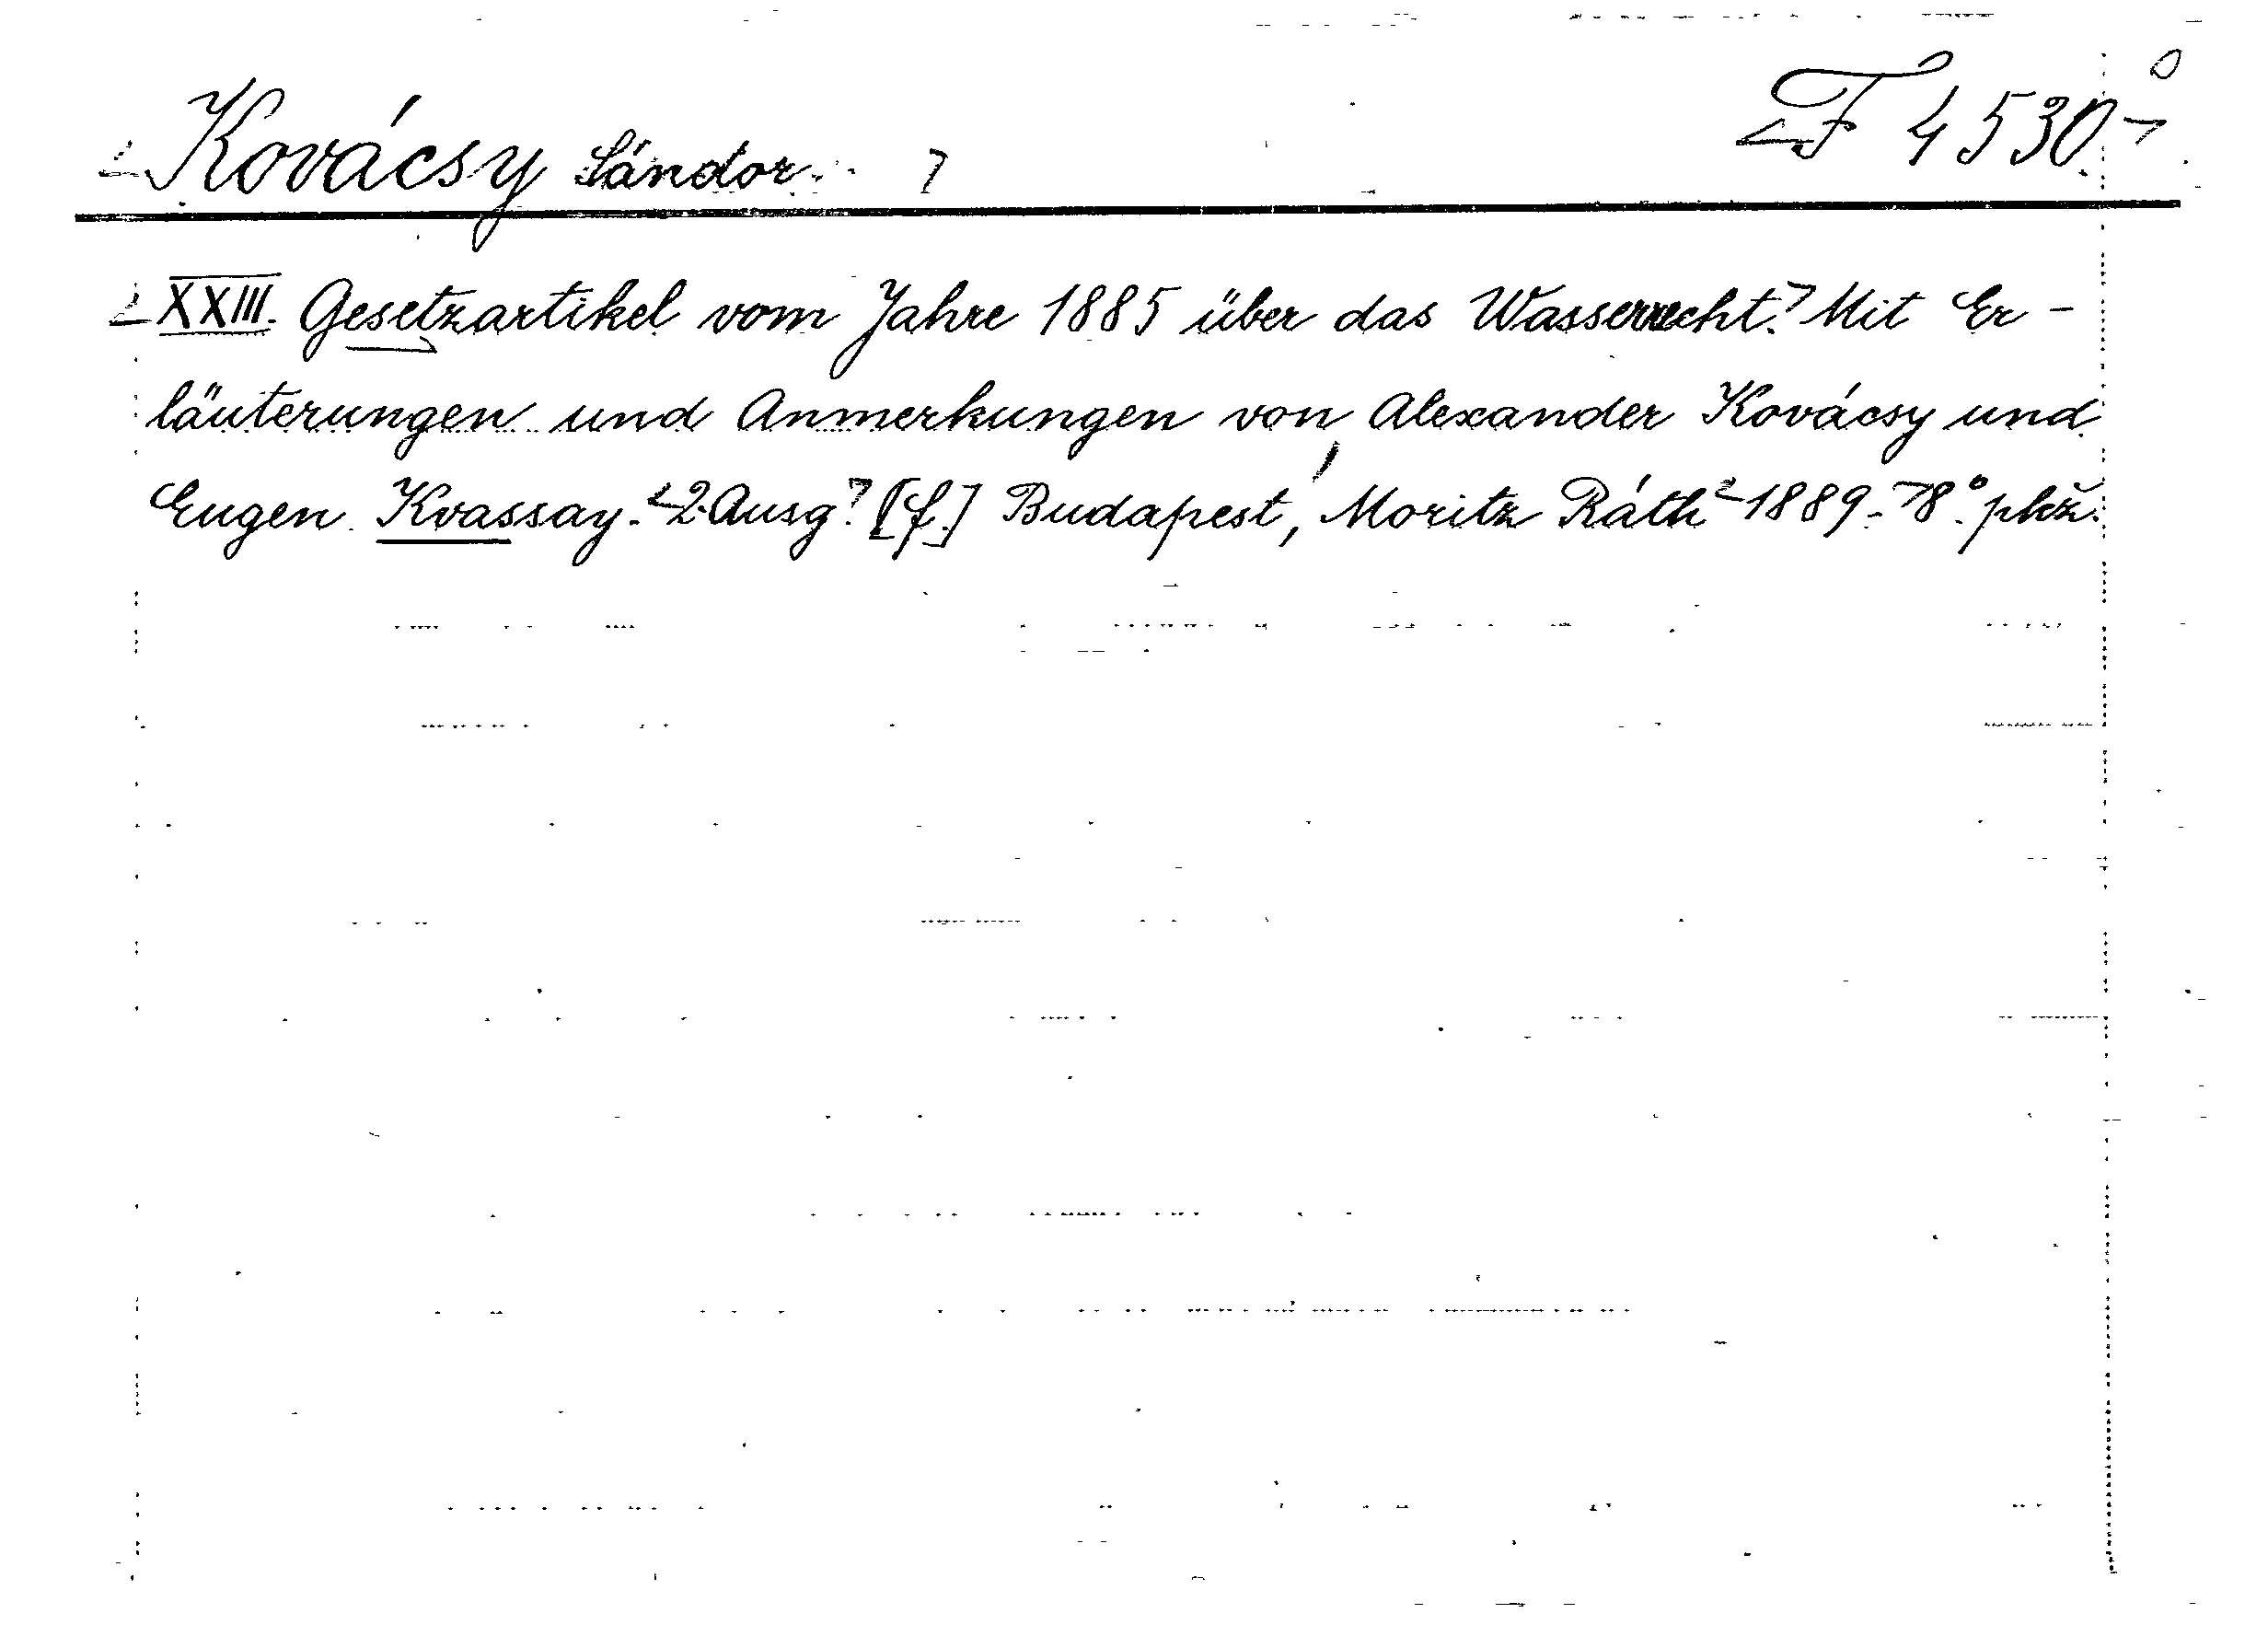 Kovácsy Sándor. F 4530
XXIII. Gesetzartikel vom Jahre 1885 über das Wasserrecht. Mit Er-
läuterungen und Anmerkungen von Alexander Kovácsy und
Eugen Kvassay. 2. Ausg. [f.] Budapest, Moritz Ráth 1889. 8° pkž.